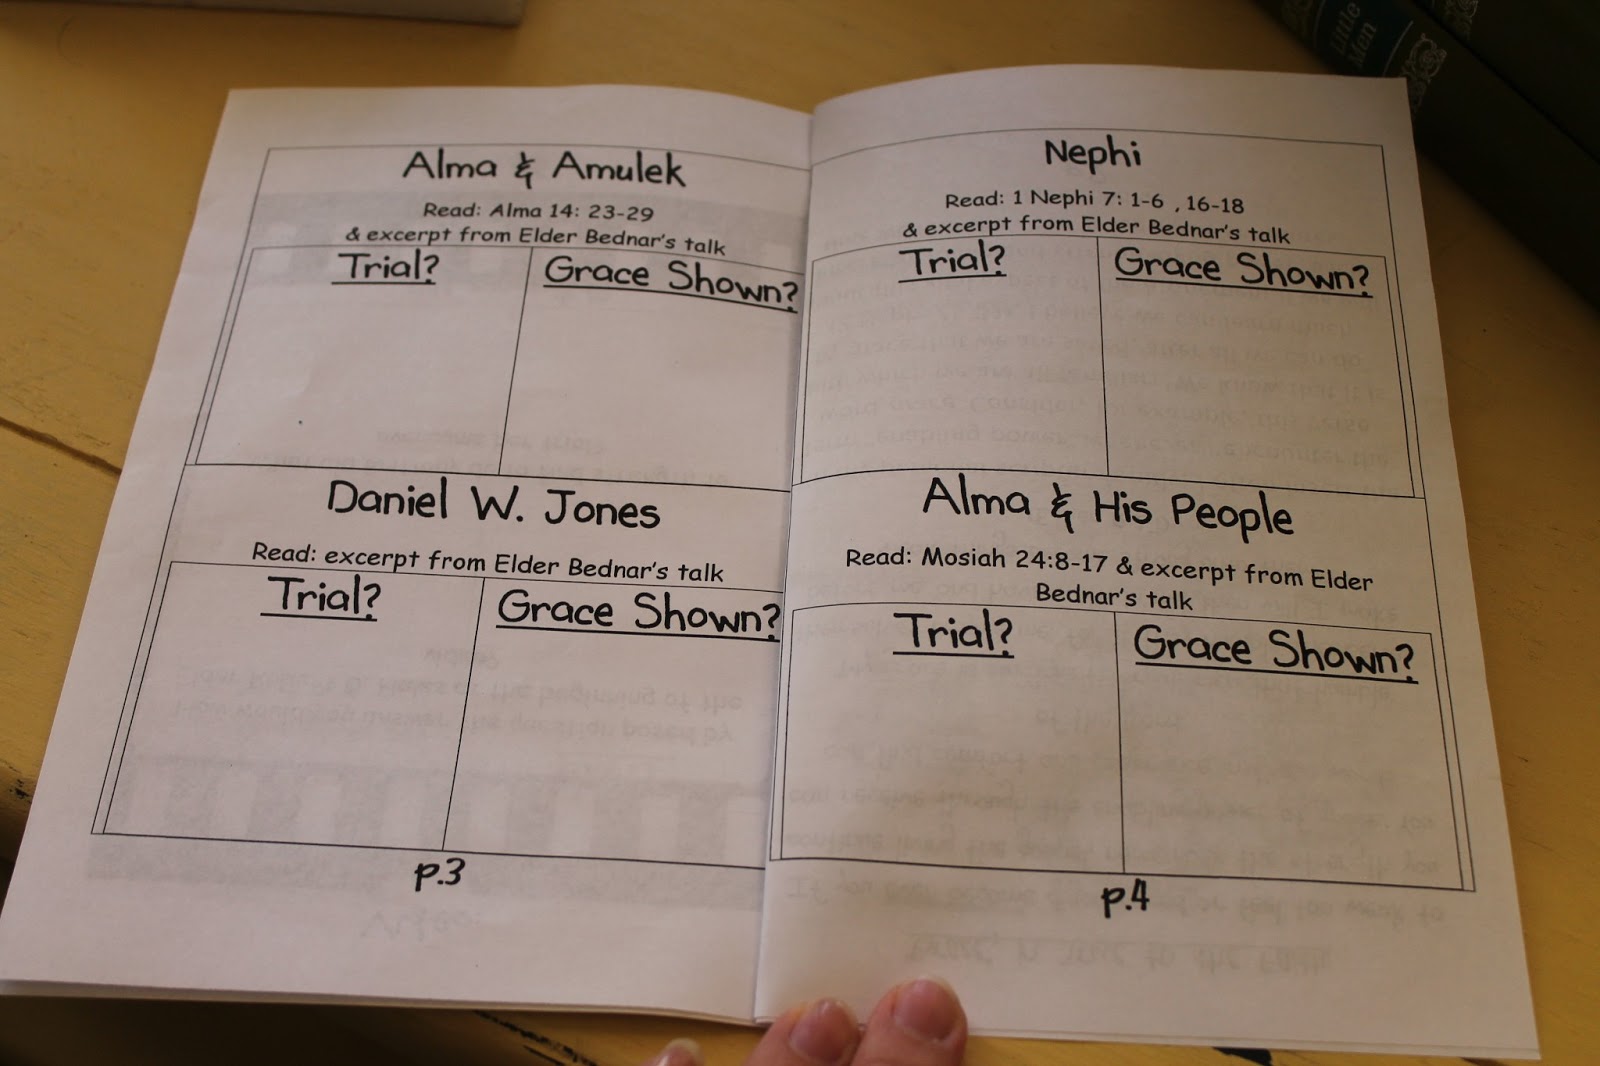 Alma & Amulek
Read: Alma 14: 23-29
& excerpt from Elder Bednar's talk
Trial?
Grace Shown?
Daniel W. Jones
Read: excerpt from Elder Bednar's talk
Trial?
Grace Shown?
p.3
Nephi
Read: 1 Nephi 7: 1-6 , 16-18
& excerpt from Elder Bednar's talk
Trial?
Grace Shown?
Alma & His People
Read: Mosiah 24:8-17 & excerpt from Elder
Bednar's talk
Trial?
Grace Shown?
p.4
Little
Men